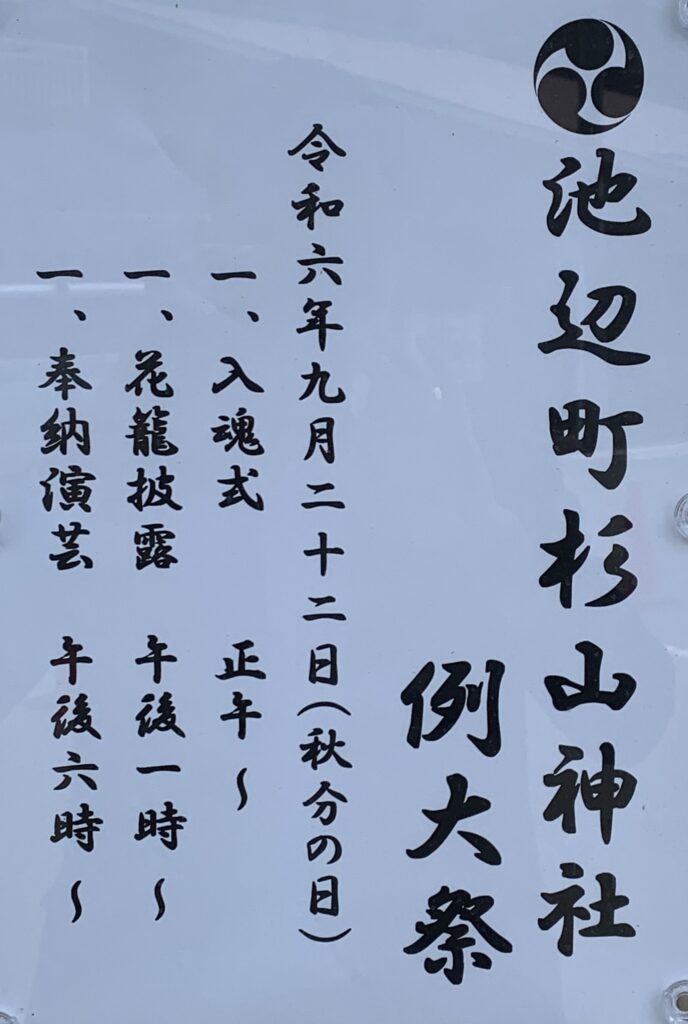 池辺町杉山神社
例大祭
令和六年九月二十二日(秋分の日)
一、入魂式 正午～
一、花籠披露 午後一時～
一、奉納演芸 午後六時～